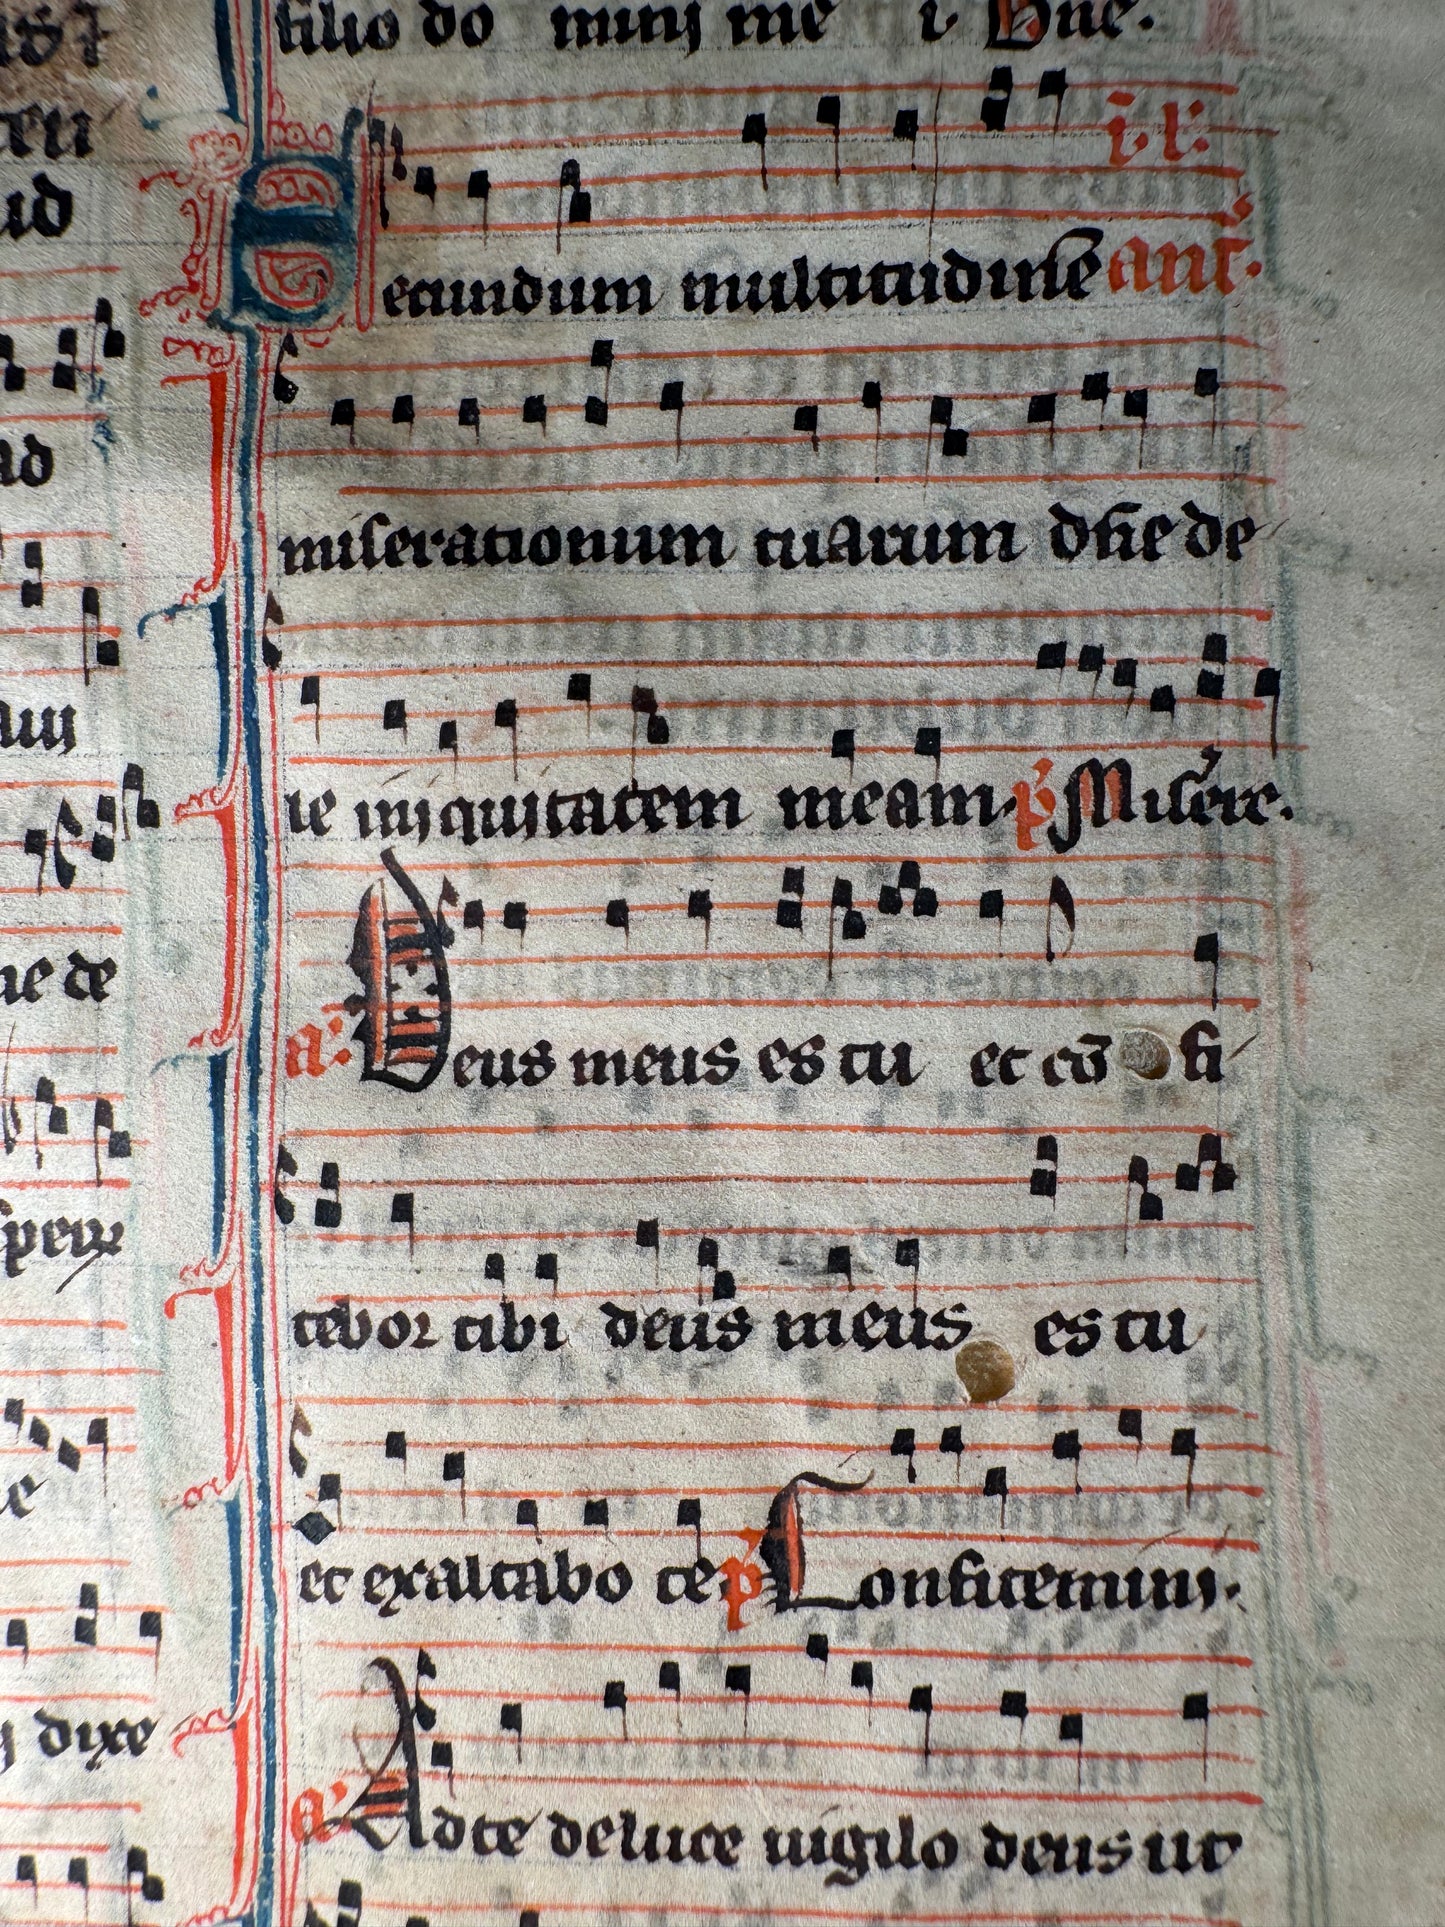 filio do mini me i Dne.
ecundum multitudinē añt.
i. lr.
miserationum tuarum dñe de
le iniquitatem meam. p̄ Misere.
a. Deus meus es tu et cō fi
tebor tibi deus meus es tu
et exaltabo te p̄ Confitemini.
a. Ad te de luce uigilo deus ut
ad
ne de
dixe